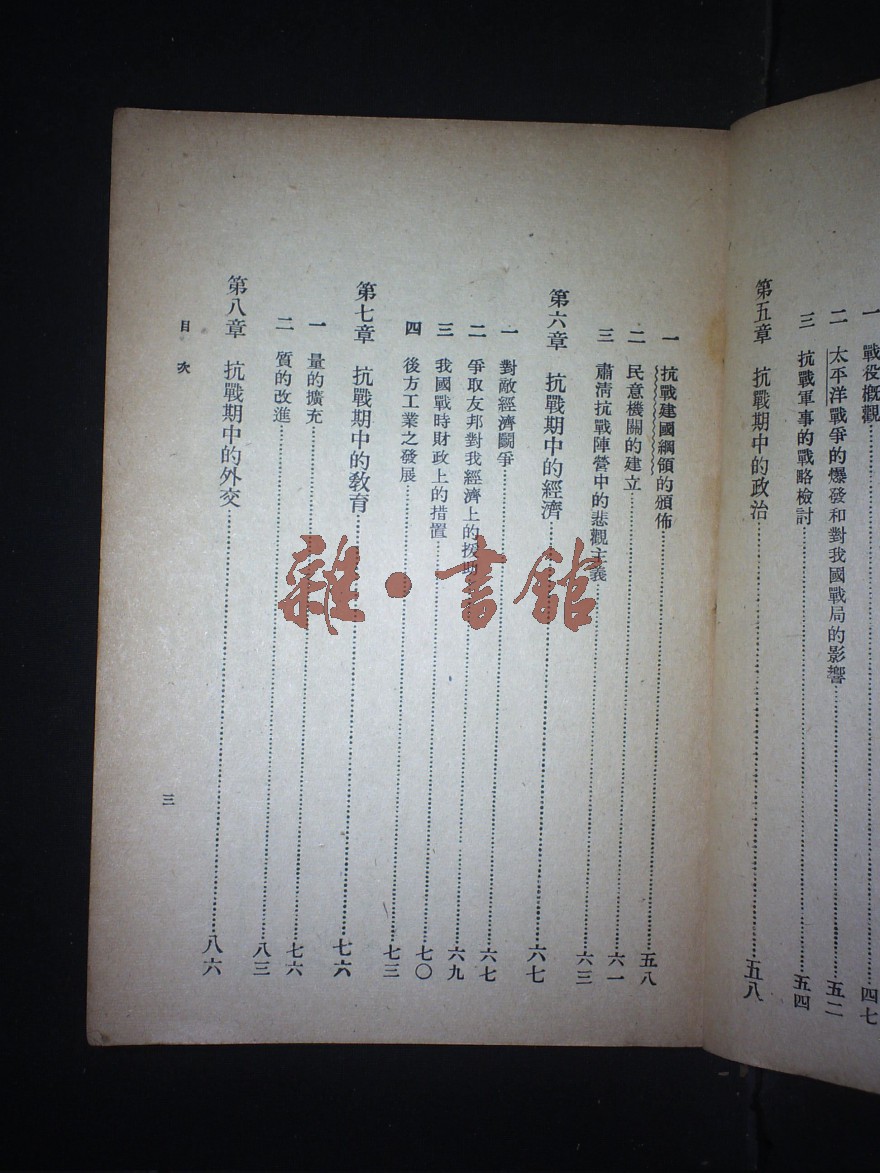 一 戰役概觀 四七
二 太平洋戰爭的爆發和對我國戰局的影響 五二
三 抗戰軍事的戰略檢討 五四
第五章 抗戰期中的政治 五八
一 抗戰建國綱領的頒佈 五八
二 民意機關的建立 六一
三 肅清抗戰陣營中的悲觀主義 六三
第六章 抗戰期中的經濟 六七
一 對敵經濟鬭爭 六七
二 爭取友邦對我經濟上的援助 六九
三 我國戰時財政上的措置 七〇
四 後方工業之發展 七三
第七章 抗戰期中的敎育 七六
一 量的擴充 七六
二 質的改進 八三
第八章 抗戰期中的外交 八六
目次
三
雜·書館